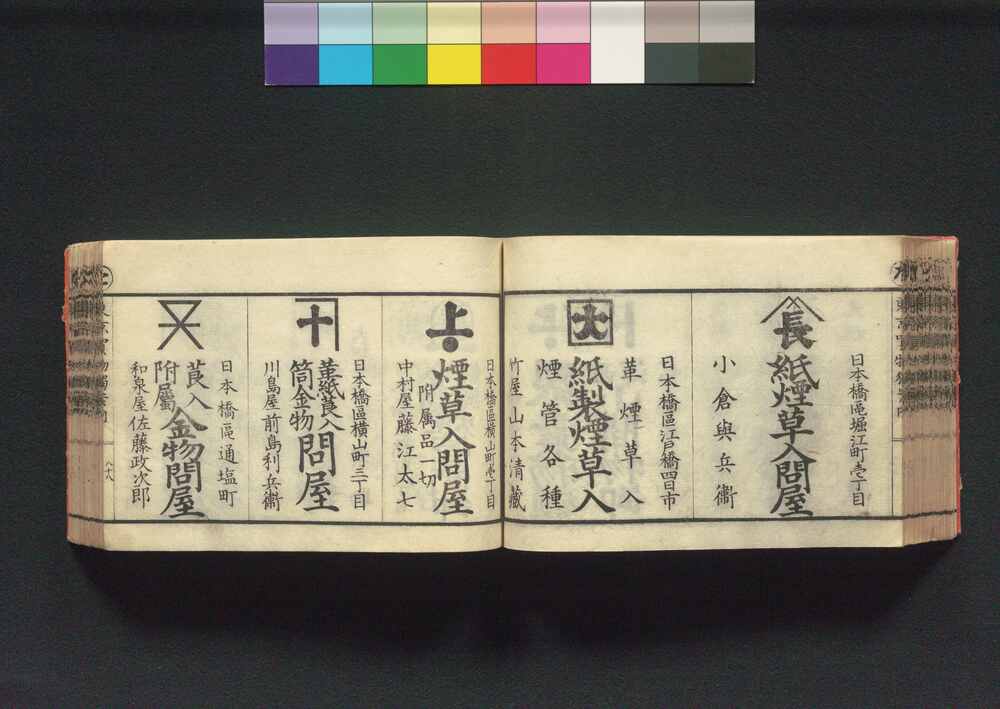 長
日本橋區堀江町壱丁目
紙煙草入問屋
小倉與兵衞
大
日本橋區江戸橋四日市
革煙草入
紙製煙草入
煙管各種
竹屋山本清藏
上
日本橋區横山町壱丁目
煙草入問屋
附属品一切
中村屋藤江太七
十
日本橋區横山町三丁目
革紙莨入
筒金物
問屋
川島屋前島利兵衞
日本橋區通塩町
莨入
附屬
金物問屋
和泉屋佐藤政次郎